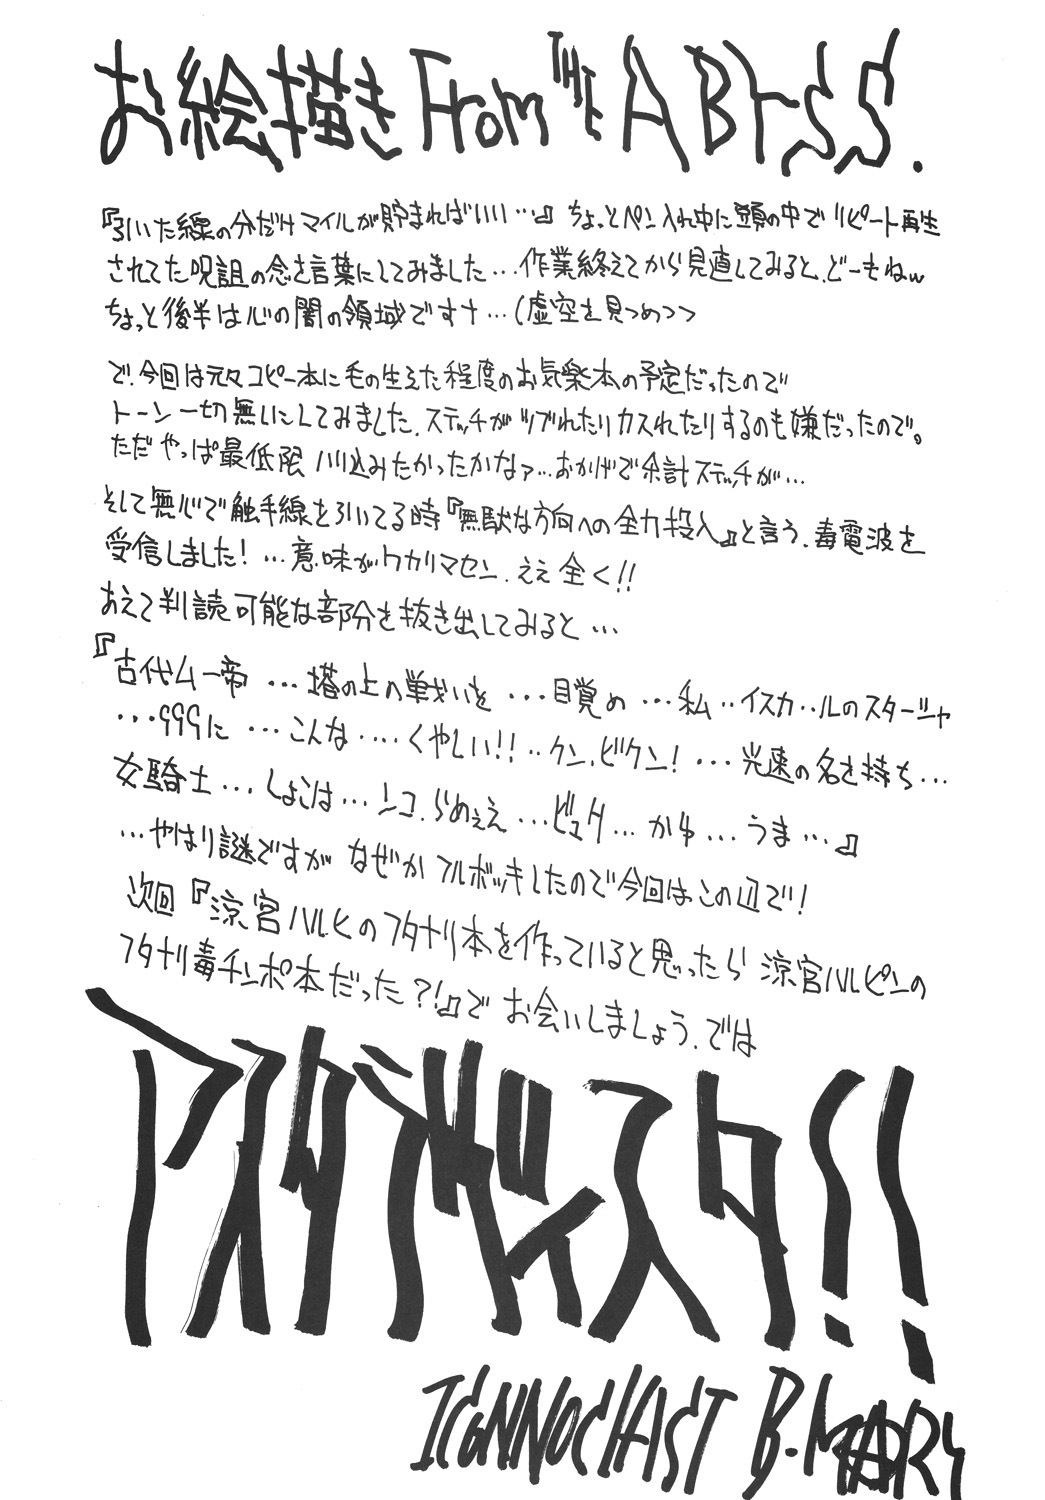 お絵描き From THE ABYSS.
『引いた線の分だけマイルが貯まればいい…』 ちょっとペン入れ中に頭の中でリピート再生
されてた呪詛の念を言葉にしてみました…作業終えてから見直してみると、どーもねw
ちょっと後半は心の闇の領域ですナ…(虚空を見つめつつ
で、今回は元々コピー本に毛の生えた程度のお気楽本の予定だったので
トーン一切無しにしてみました、ステッチがツブれたりカスれたりするのも嫌だったので。
ただやっぱ最低限 ハリ込みたかったかなァ…おかげで余計ステッチが…
そして無心で触手線を引いてる時『無駄な方向への全力投入』と言う、毒電波を
受信しました!…意味がワカリマセン、ええ全く!!
あえて判読可能な部分を抜き出してみると…
『古代ムー帝…塔の上の戦いを…目覚め…私‥イスカ‥ルのスタージャ
…999に…こんな‥‥くやしい!!‥クン、ビクン!…光速の名を持ち…
女騎士…しょこは…ンコ、らめぇえ…ビュク…かゆ…うま…』
…やはり謎ですが なぜかフルボッキしたので今回はこの辺で!
次回『涼宮ハルヒのフタナリ本を作っていると思ったら 涼宮ハルピンの
フタナリ毒チンポ本だった?!』で お会いしましょう、では
アスタラビスタ!!
ICONNOCLAST B.MARY